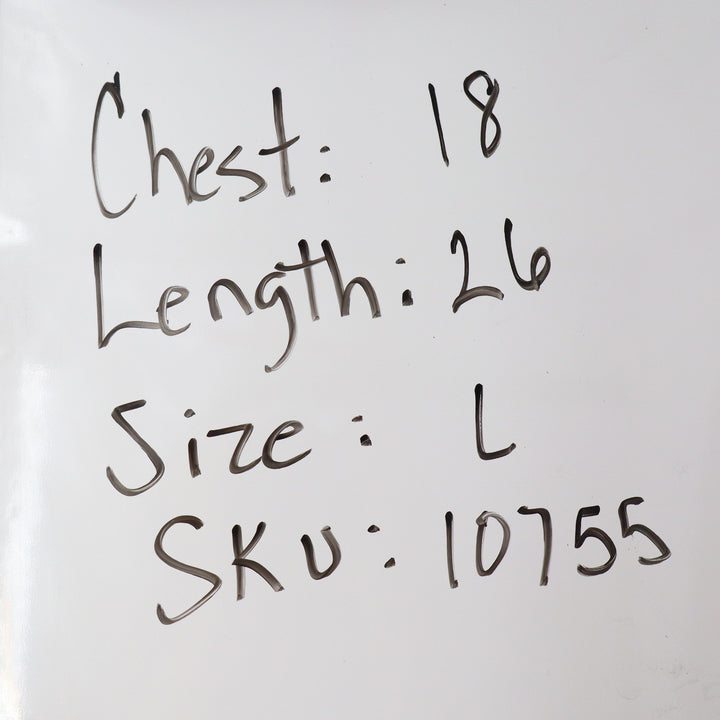 Chest: 18
Length: 26
Size: L
SKU: 10755